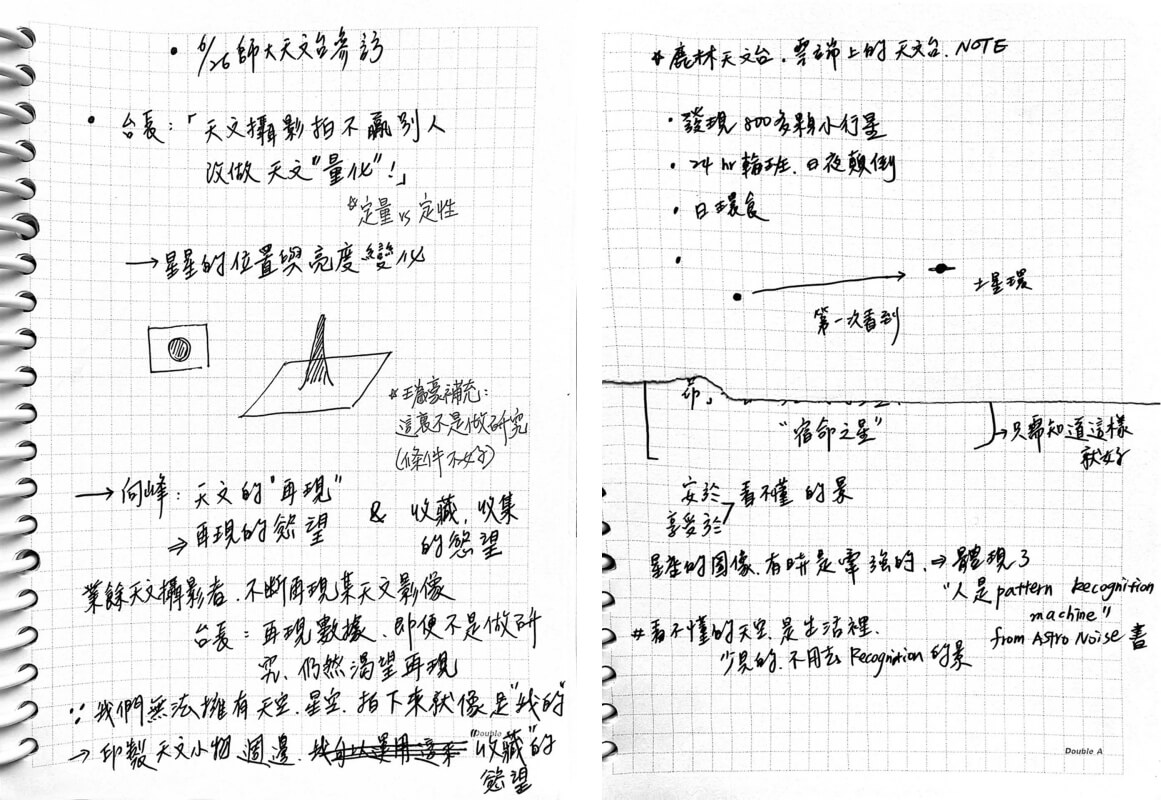 • 6/26 師大天文台參訪
• 台長:「天文攝影拍不贏別人
改做天文"量化"!」
*定量 vs 定性
→星星的位置與亮度變化
*瑞豪補充:
這裏不是做研究
(條件不好)
→ 向峰: 天文的"再現"
⇒ 再現的慾望
& 收藏, 收集
的慾望
業餘天文攝影者, 不斷再現某天文影像
台長: 再現數據, 即便不是做研
究, 仍然渴望再現
∵ 我們無法擁有天空, 星空, 拍下來就像是"我的"
→ 印製天文小物週邊, "收藏"的
慾望
Double
* 鹿林天文台, 雲端上的天文台, NOTE
• 發現 800多顆小行星
• 24 hr 輪班, 日夜顛倒
• 日環食
•
土星環
第一次看到
"宿命之星"
→只需知道這樣
就好
安於 看不懂的景
享受於
星座的圖像, 有時是牽強的, → 體現了
"人是pattern Recognition
machine"
from Astro Noise 書
*看不懂的天空, 是生活裡,
少見的, 不用去 Recognition 的景
Double A